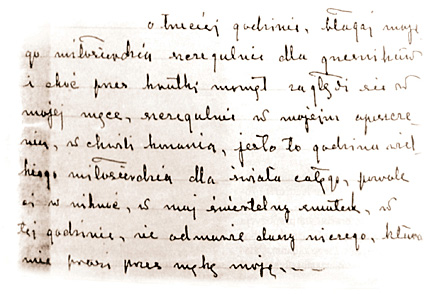 o trzeciej godzinie, błagaj moje
go miłosierdzia szczegulnie dla grzeszników
i choć przez krutki moment zagłębi się w
mojej męce, szczegulnie w mojem opuszcze-
niu, w chwili konania, jest to godzina wiel-
kiego miłosierdzia dla świata całego, pozwolę
ci wniknąć, w mój śmiertelny smutek, w
tej godzinie, nie odmówię duszy niczego, która
mnie prosi przez mękę moję, – –